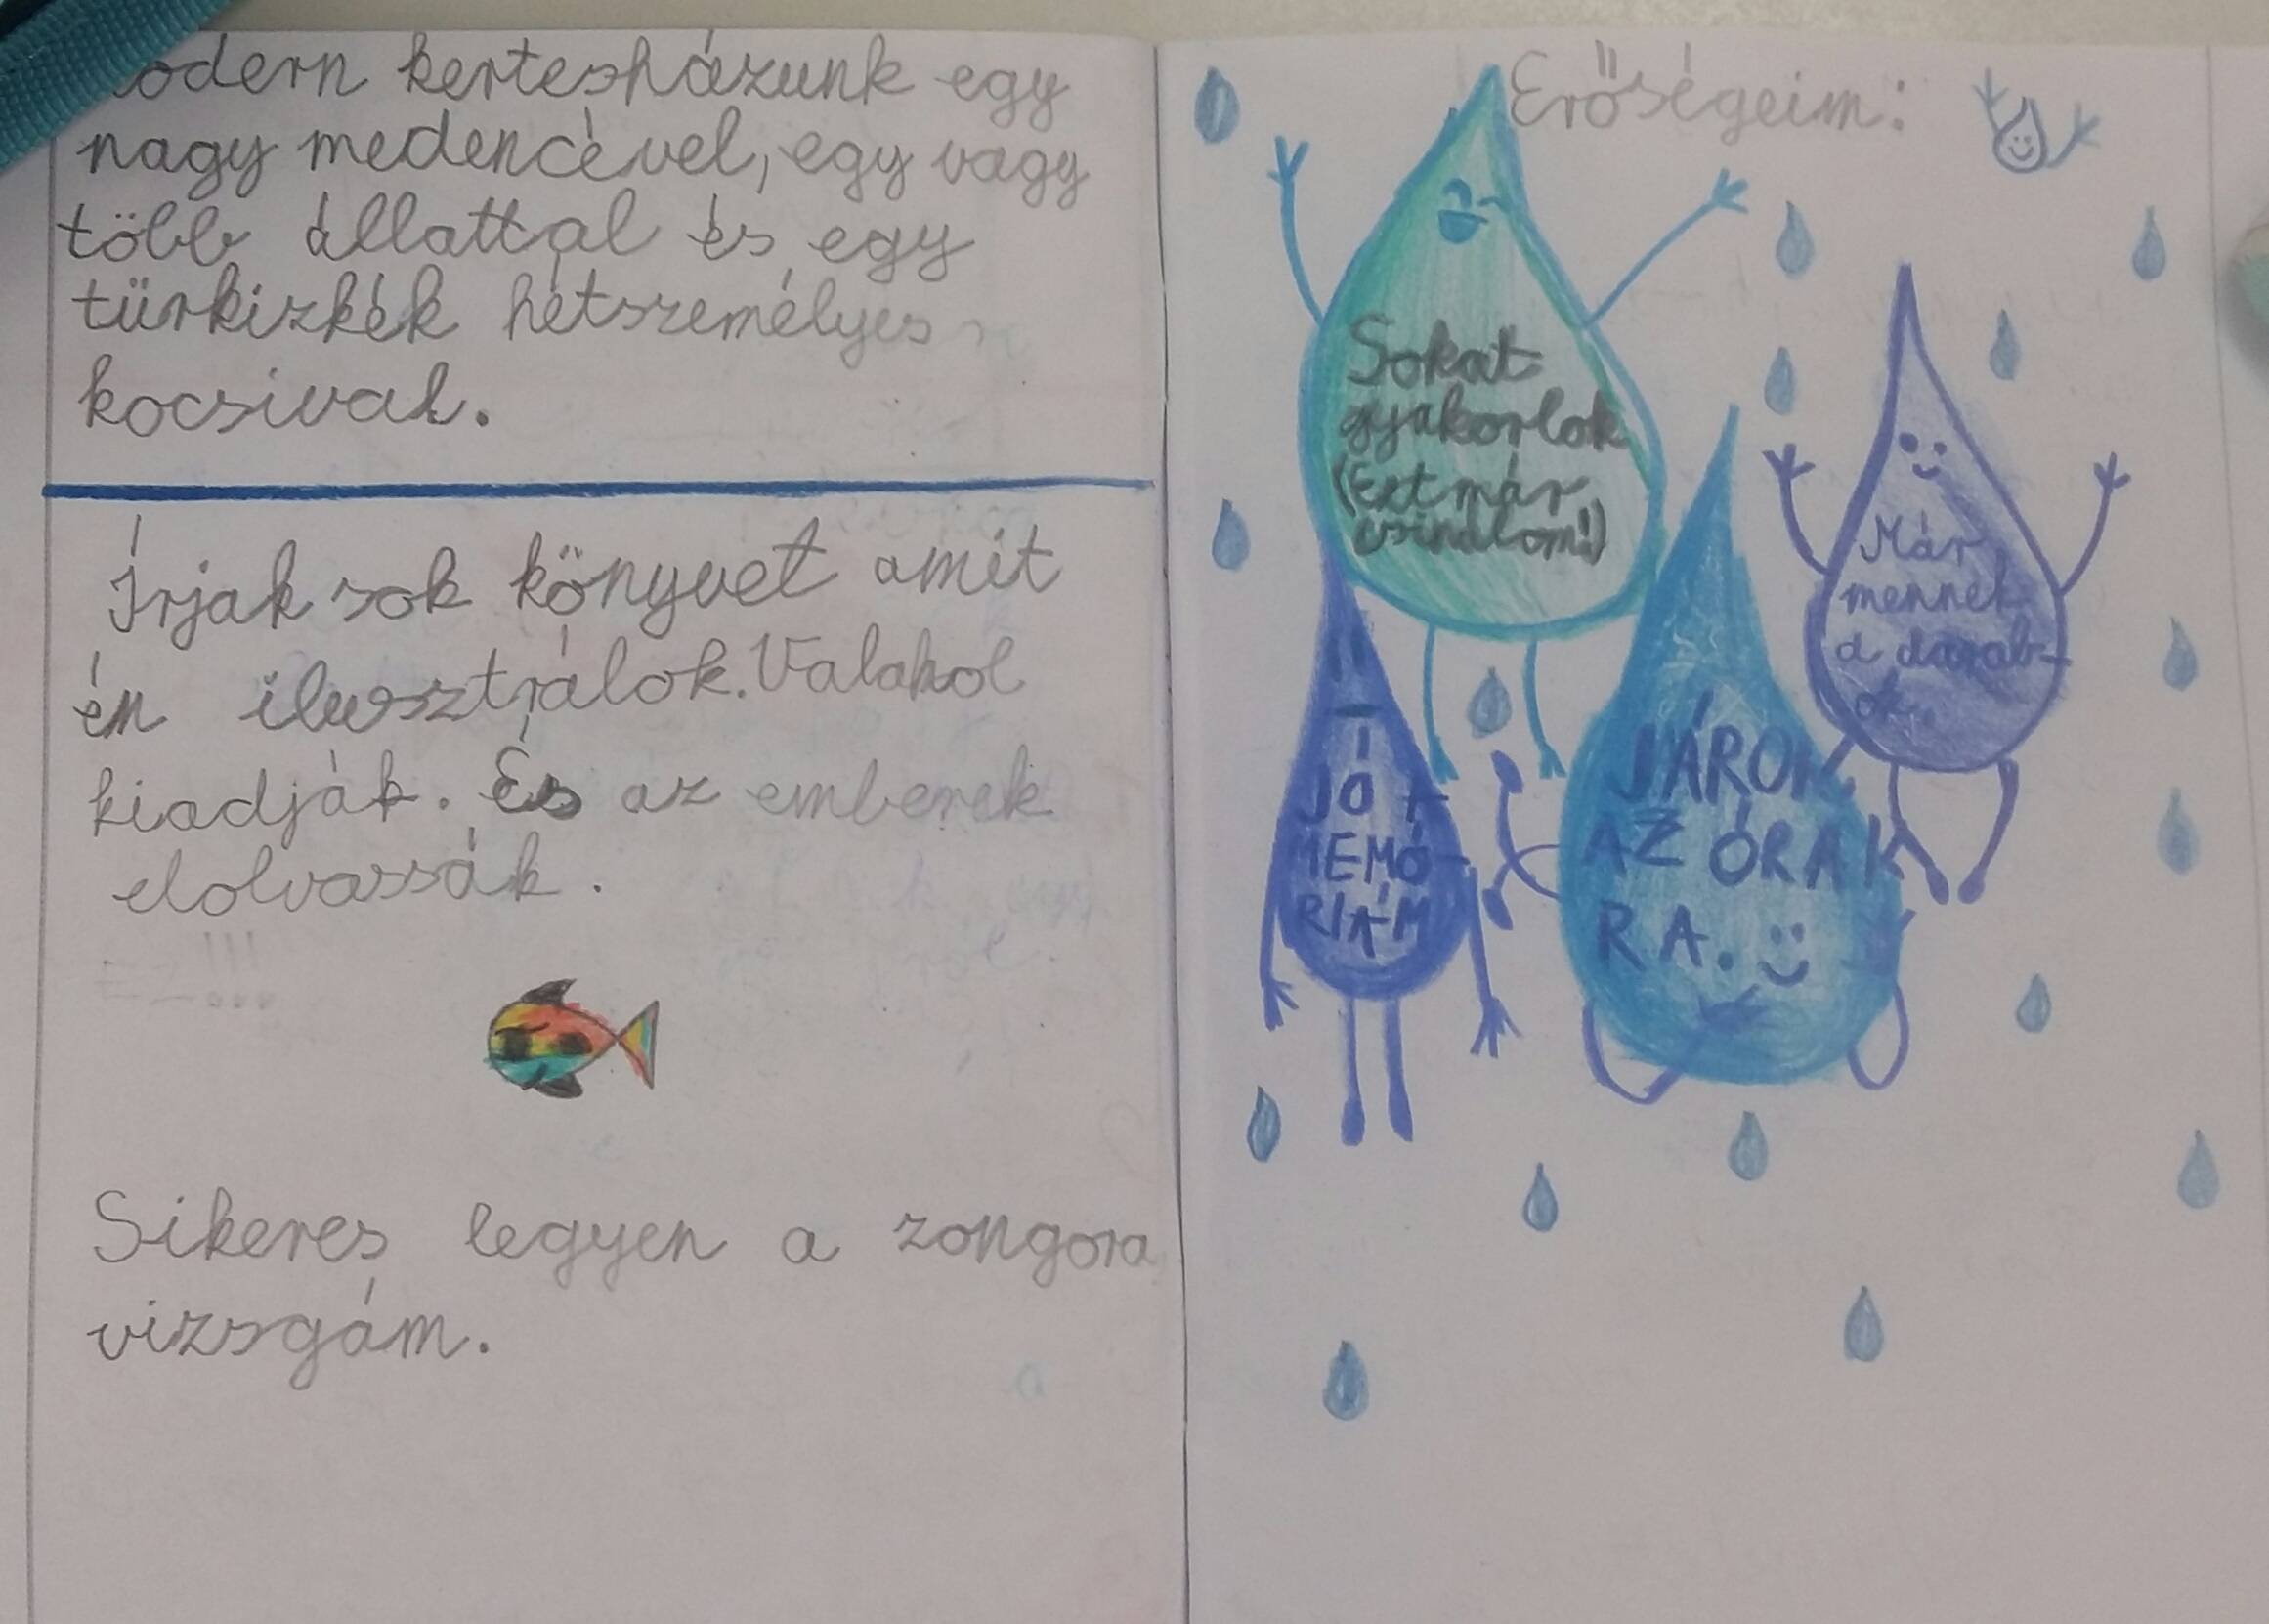 odern kertesházunk egy
nagy medencével, egy vagy
több állattal és egy
türkizkék hétszemélyes
kocsival.
Írjak sok könyvet amit
én ilusztrálok. Valahol
kiadják. És az emberek
elolvassák.
Sikeres legyen a zongora
vizsgám.
Erősségeim:
Sokat
gyakorlok
(Ezt már
csinálom!)
Már
mennek
a darab-
ok.
JÓ
MEMÓ-
RIÁM
JÁROK
AZ ÓRÁK
RA.